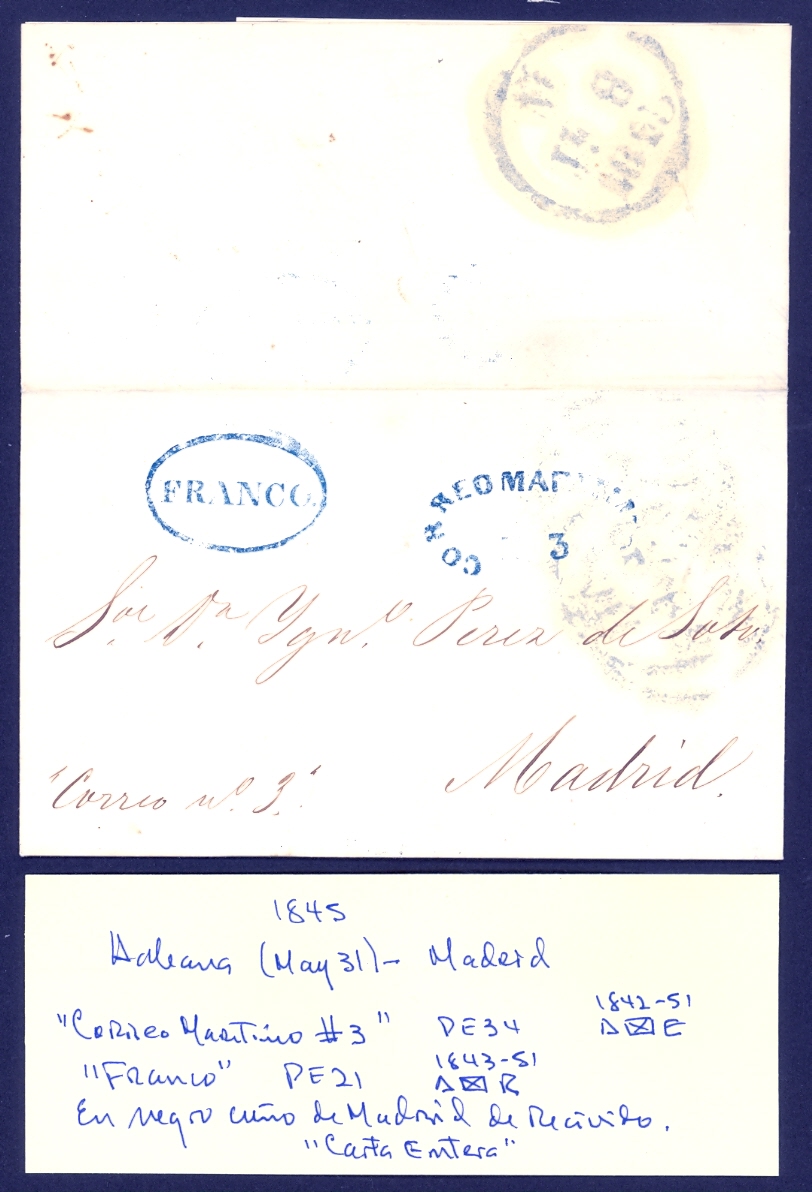 FRANCO.
CORREO MARITIMO
3
Sor. Dn. Ygno. Perez de Soto.
Madrid.
"Correo no. 3"
1845
Habana (May 31) - Madrid
1842-51
"Correo Maritimo #3" PE34 A⊠E
1843-51
"Franco" PE21 A⊠R
En negro cuño de Madrid de Recivido.
"Carta Entera"